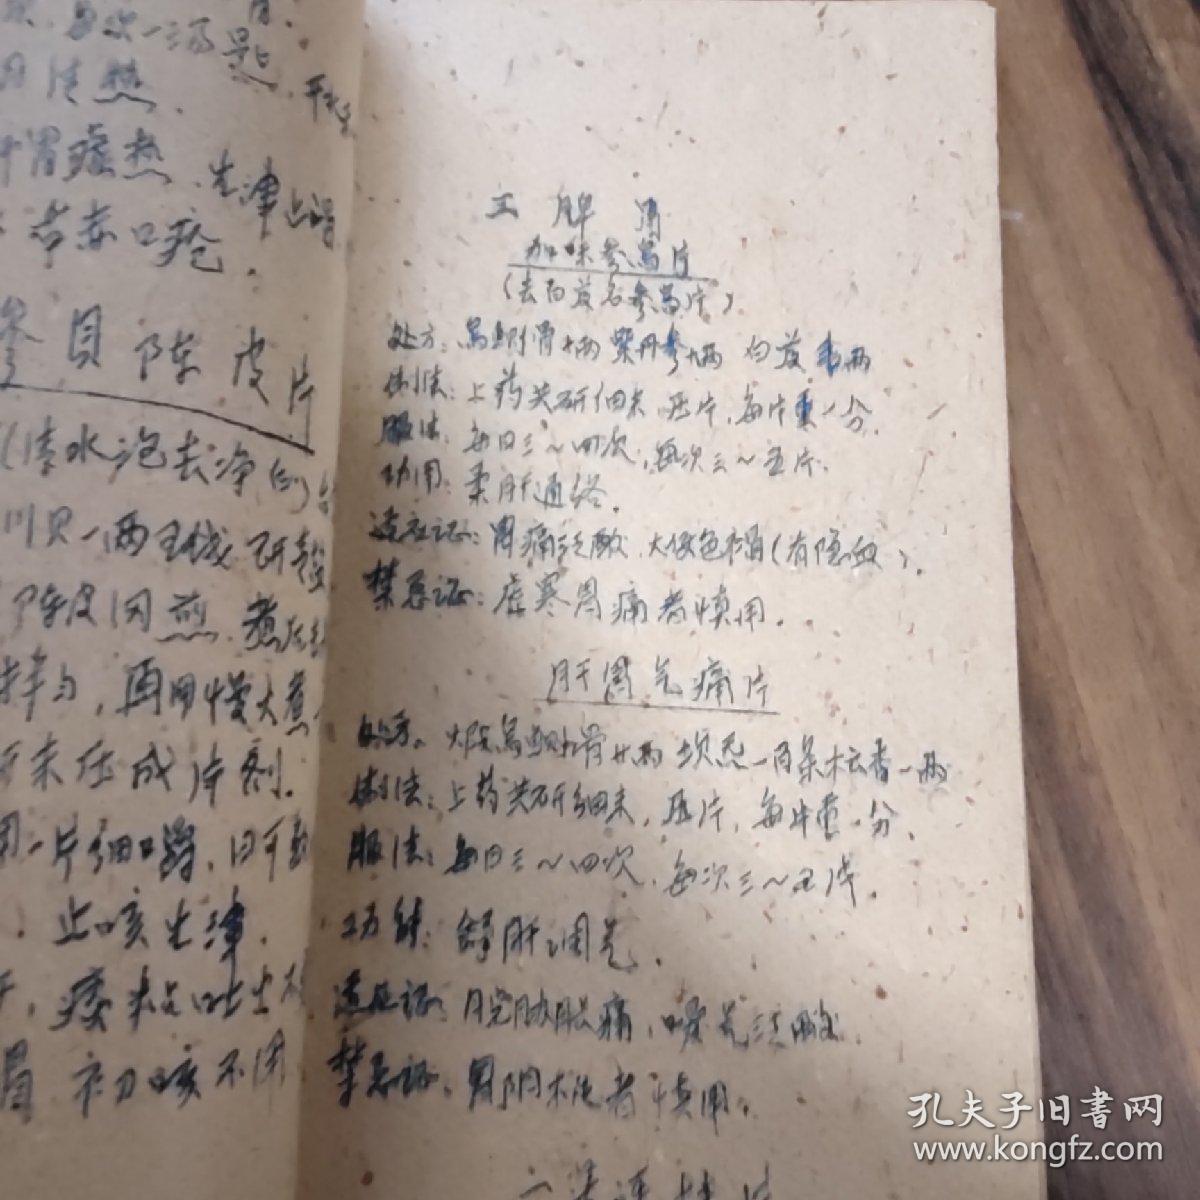 每次一汤匙
清热
胃虚热 生津止渴
舌赤口疮.
参贝陈皮片
(清水泡去净
川贝一两
陈皮同煎
拌匀,再用慢火煮
末压成片剂.
一片细嚼,日
止咳生津.
痰粘吐出不
初咳不用
脾胃
加味参乌片
(去白芨名参乌片)
处方:乌鲗骨十两 紫丹参十两 白芨
制法:上药共研细末,压片,每片重一分.
服法:每日三~四次,每次三~五片.
功用:柔肝通络.
适应证:胃痛泛酸,大便色褐(有隐血).
禁忌证:虚寒胃痛者慎用.
肝胃气痛片
处方:煅乌鲗骨廿两
制法:上药共研细末,压片,每片重一分.
服法:每日三~四次,每次三~五片.
功能:舒肝调气.
适应证:脘腹胀痛,嗳气泛酸.
禁忌证:胃阴不足者慎用.
孔夫子旧书网
www.kongfz.com